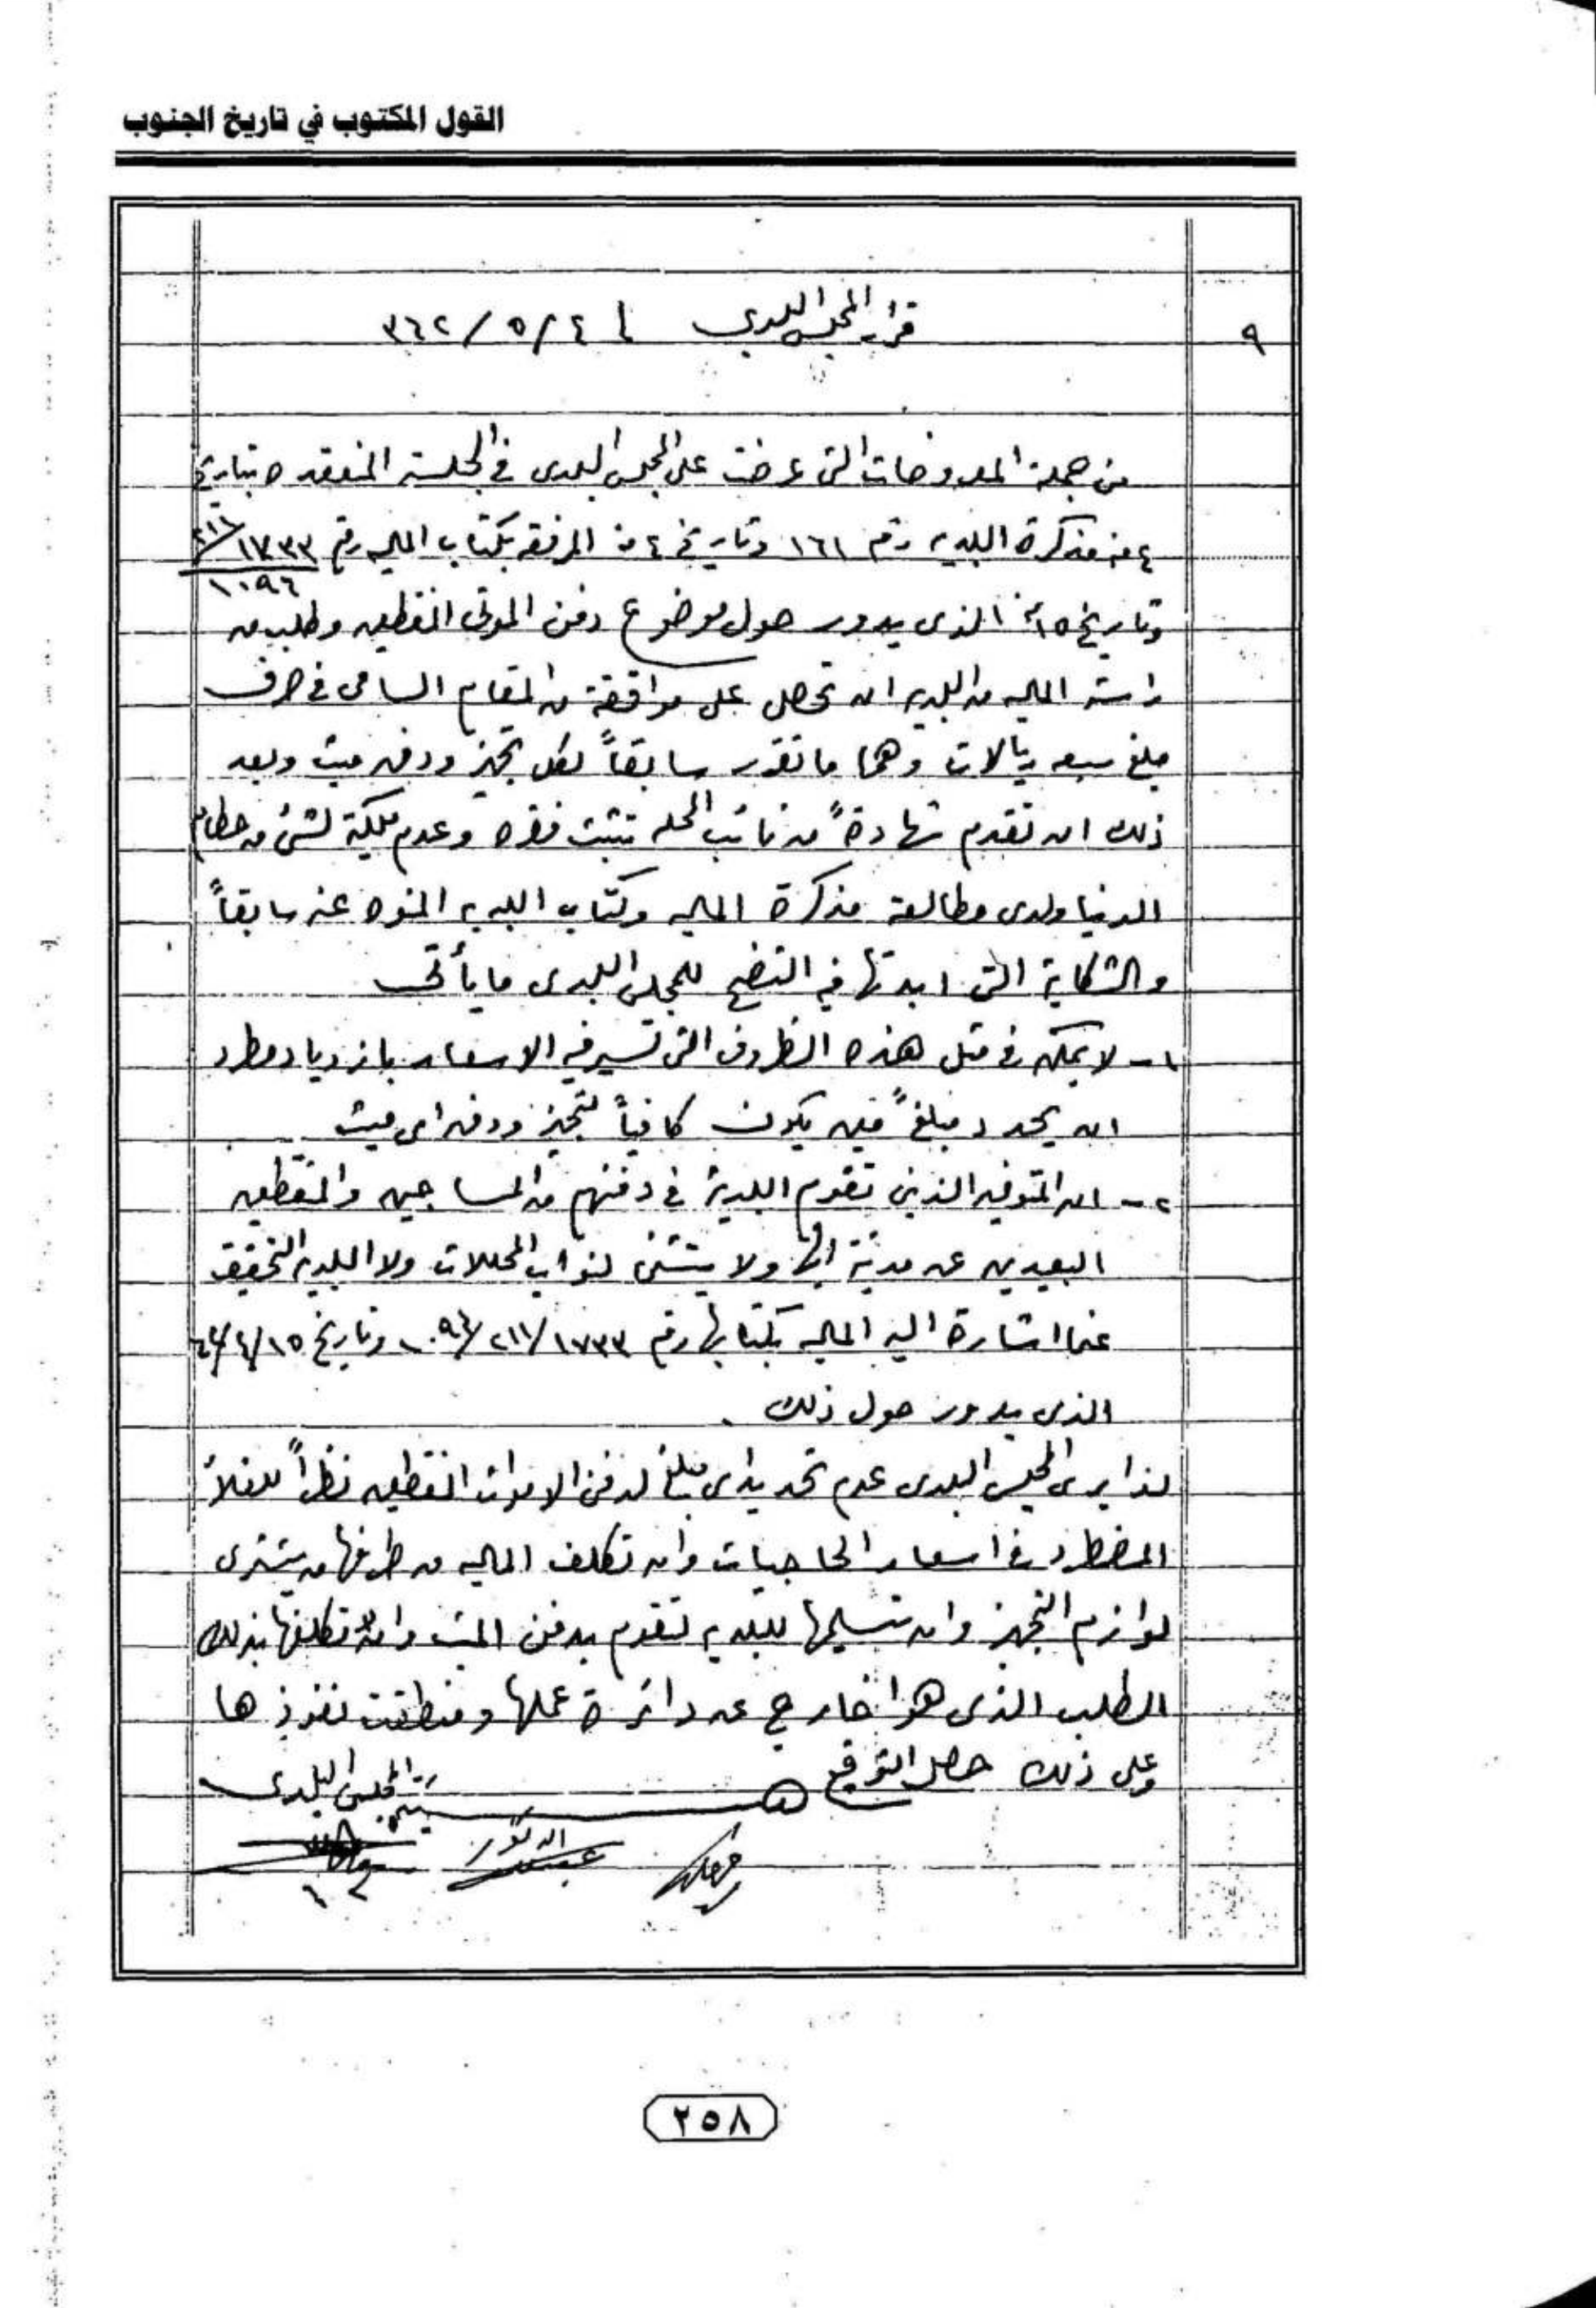 القول المكتوب في تاريخ الجنوب
٩
قرار المجلس البلدي ٤/٥/٣٦٢
من جملة المعروضات التى عرضت على المجلس البلدى في الجلسة المنعقده بتاريخ
٤ منه مذكرة البلديه رقم ١٦١ وتاريخ ٤ منه المرفقه بكتاب الماليه رقم ١٧٣٣/٢١١
١٠٩٦
وتاريخ ١٥ الذى يدور حول موضوع دفن الموتى المنقطعين وطلب من
الماليه من البلديه ان تحصل على موافقة من المقام السامى في صرف
مبلغ سبعه ريالات وهما ما تقرر سابقاً لكل تجهيز ودفن ميت وبعد
ذلك ان تقدم شهادةً من نائب المحله تثبت فقره وعدم ملكية لشئ من حطام
الدنيا ولدى مطالعة مذكرة الماليه وكتاب البلديه المنوه عنه سابقاً
والشكاية التى ابدتها فيه اتضح للمجلس البلدى ما يأتى
١- لا يمكن في مثل هذه الظروف التى تسير فيه الاسعار بازدياد مطرد
ان يحدد مبلغاً معين يكون كافياً لتجهيز ودفن اى ميت
٢- ان المتوفين الذين تقوم البلدية في دفنهم من المساجين والمنقطعين
البعيدين عن مدينة ابها ولا يتسنى لنواب المحلات ولا البلديه التحقيق
عما اشارة اليه الماليه بكتابها رقم ١٧٣٣/٢١١/١٠٩٦ وتاريخ ١٥/٤/٦٢
الذى يدور حول ذلك .
لذا يرى المجلس البلدى عدم تحديد اى مبلغ لدفن الاموات المنقطعين نظراً للغلاء
المضطرد في اسعار الحاجيات وان تكلف الماليه من طرفها من يشترى
لوازم التجهيز وان تسليمها للبلديه لتقوم بدفن الميت وان لا تكلفها بذلك
الطلب الذى هوا خارج عن دائرة عملها ومنطقت نفوذها
وعلى ذلك حصل التوقيع
المجلس البلدى
الدكتور
٢٥٨